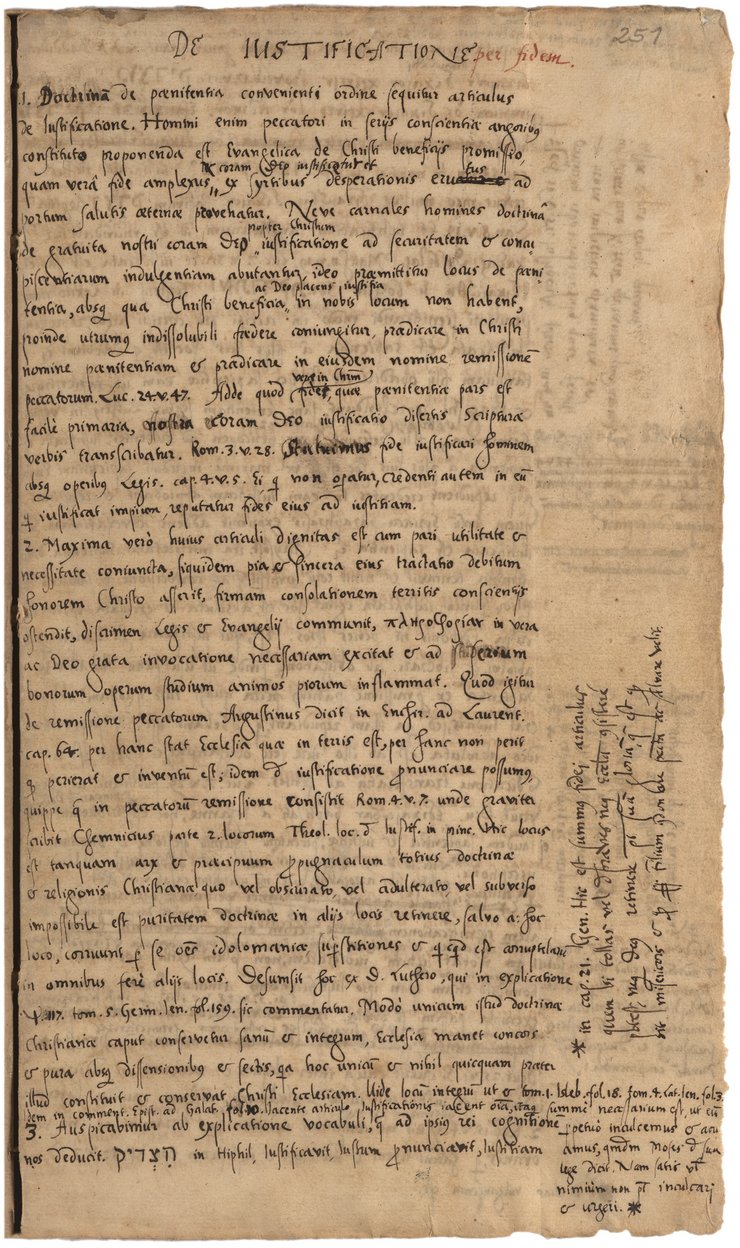 251
DE IUSTIFICATIONE per fidem.
1. Doctrinā de pœnitentia convenienti ordine sequitur articulus
de Iustificatione. Homini enim peccatori in serijs conscientiæ angoribus
constituto proponenda est Evangelica de Christi beneficijs promissio,
coram Deo iustificetur et
quam verâ fide amplexus, ex syrtibus desperationis ad
portum salutis æternæ provehatur. Neve carnales homines doctrinā
propter Christum
de gratuita nostri coram Deo iustificatione ad securitatem & concu
piscentiarum indulgentiam abutantur, ideo præmittitur locus de pœni
ac Deo placens iustitia
tentia, absq qua Christi beneficia in nobis locum non habent,
proinde utrumq indissolubili fœdere coniungitur, prædicare in Christi
nomine pœnitentiam & prædicare in eiusdem nomine remissionē
veræ in Chrm
peccatorum. Luc. 24. v. 47. Adde quòd fidei, quæ pœnitentiæ pars est
facilè primaria, nostra coram Deo iustificatio disertis Scripturæ
verbis transcribatur. Rom. 3. v. 28. Statuimus fide iustificari hominem
absq operibus Legis. cap. 4. v. 5. Ei q non operatur, credenti autem in eū
q iustificat impium, reputatur fides eius ad iustitiam.
2. Maxima verò huius articuli dignitas est cum pari utilitate &
necessitate coniuncta, siquidem pia & sincera eius tractatio debitum
honorem Christo asserit, firmam consolationem territis conscientijs
ostendit, discrimen Legis & Evangelij communit, πληροφορίαν in vera
ac Deo grata invocatione necessariam excitat & ad
bonorum operum studium animos piorum inflammat. Quod igitur
de remissione peccatorum Augustinus dicit in Enchir. ad Laurent.
cap. 64. per hanc stat Ecclesia quæ in terris est, per hanc non perit
q perierat & inventū est, idem d iustificatione pronunciare possumus,
quippe q in peccatorū remissione consistit Rom. 4. v. 7. unde graviter
scribit Chemnicius parte 2. locorum Theol. loc. d Iustif. in princ. Hic locus
est tanquam arx & præcipuum propugnaculum totius doctrinæ
& religionis Christianæ quo vel obscurato, vel adulterato, vel subverso
impossibile est puritatem doctrinæ in alijs locis retinere, salvo a: hoc
loco, corruunt p se oēs idolomaniæ, superstitiones & quicquid est corruptelarū
in omnibus ferè alijs locis. Desumsit hoc ex D. Luthero, qui in explicatione
Ψ. 117. tom. 5. Germ. Ien. fol. 159. sic commentatur. Modò unicum istud doctrinæ
Christianæ caput conservetur sanū & integrum, Ecclesia manet concors
& pura absq dissensionibus & sectis, qa hoc unicū & nihil quicquam præter
illud constituit & conservat Christi Ecclesiam. Vide locū integrū ut & tom. 1. Isleb. fol. 18. tom. 4. Lat. Ien. fol. 3.
Idem in comment. Epist. ad Galat. fol. 10. Iacente articulo Iustificationis iacent oīa, itaq summè necessarium est, ut eū
3. Auspicabimur ab explicatione vocabuli, q ad ipsius rei cognitionē
nos deducit. הצדיק in Hiphil, Iustificavit, Iustum pronunciavit, Iustitiam
perpetuò inculcemus & acu
amus, qmdm Moses d sua
lege dicit. Nam satis vl
nimium non pt inculcari
& urgeri. *
* in cap. 21. Gen. Hic est summus fidei articulus
quem si tollas vel
retinere suā gloriā
misericors & filium